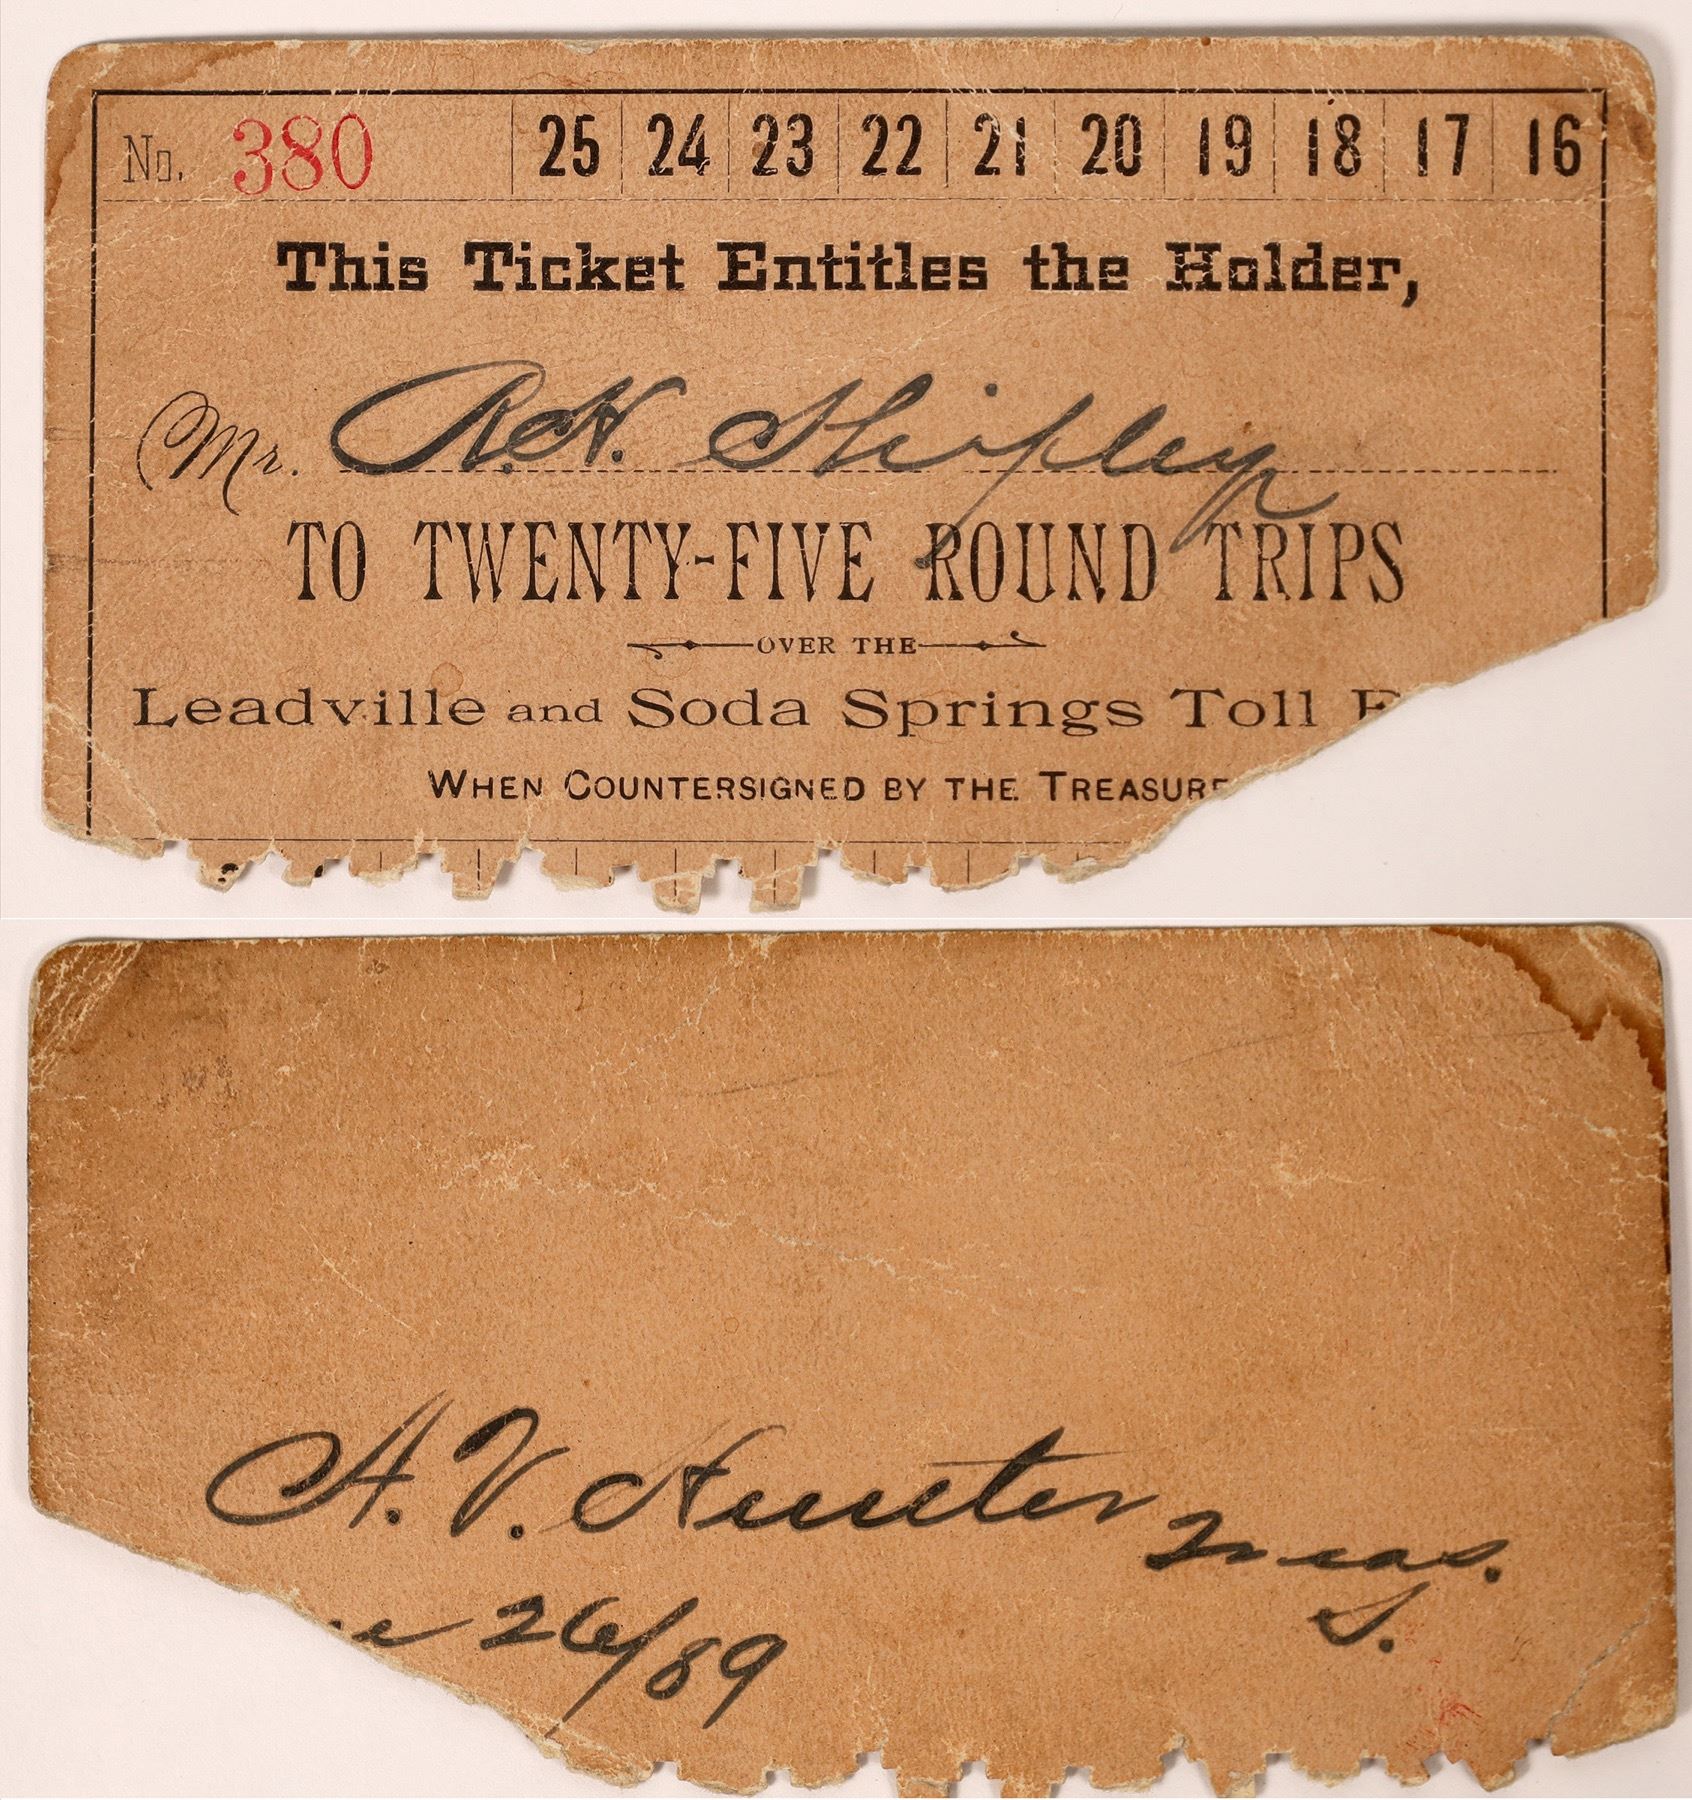 No. 380 25 24 23 22 21 20 19 18 17 16
This Ticket Entitles the Holder,
Mr. R.H. Shipley
TO TWENTY-FIVE ROUND TRIPS
OVER THE
Leadville and Soda Springs Toll
WHEN COUNTERSIGNED BY THE TREASURE
A. V. Hunter Treas.
S.
e 26/89